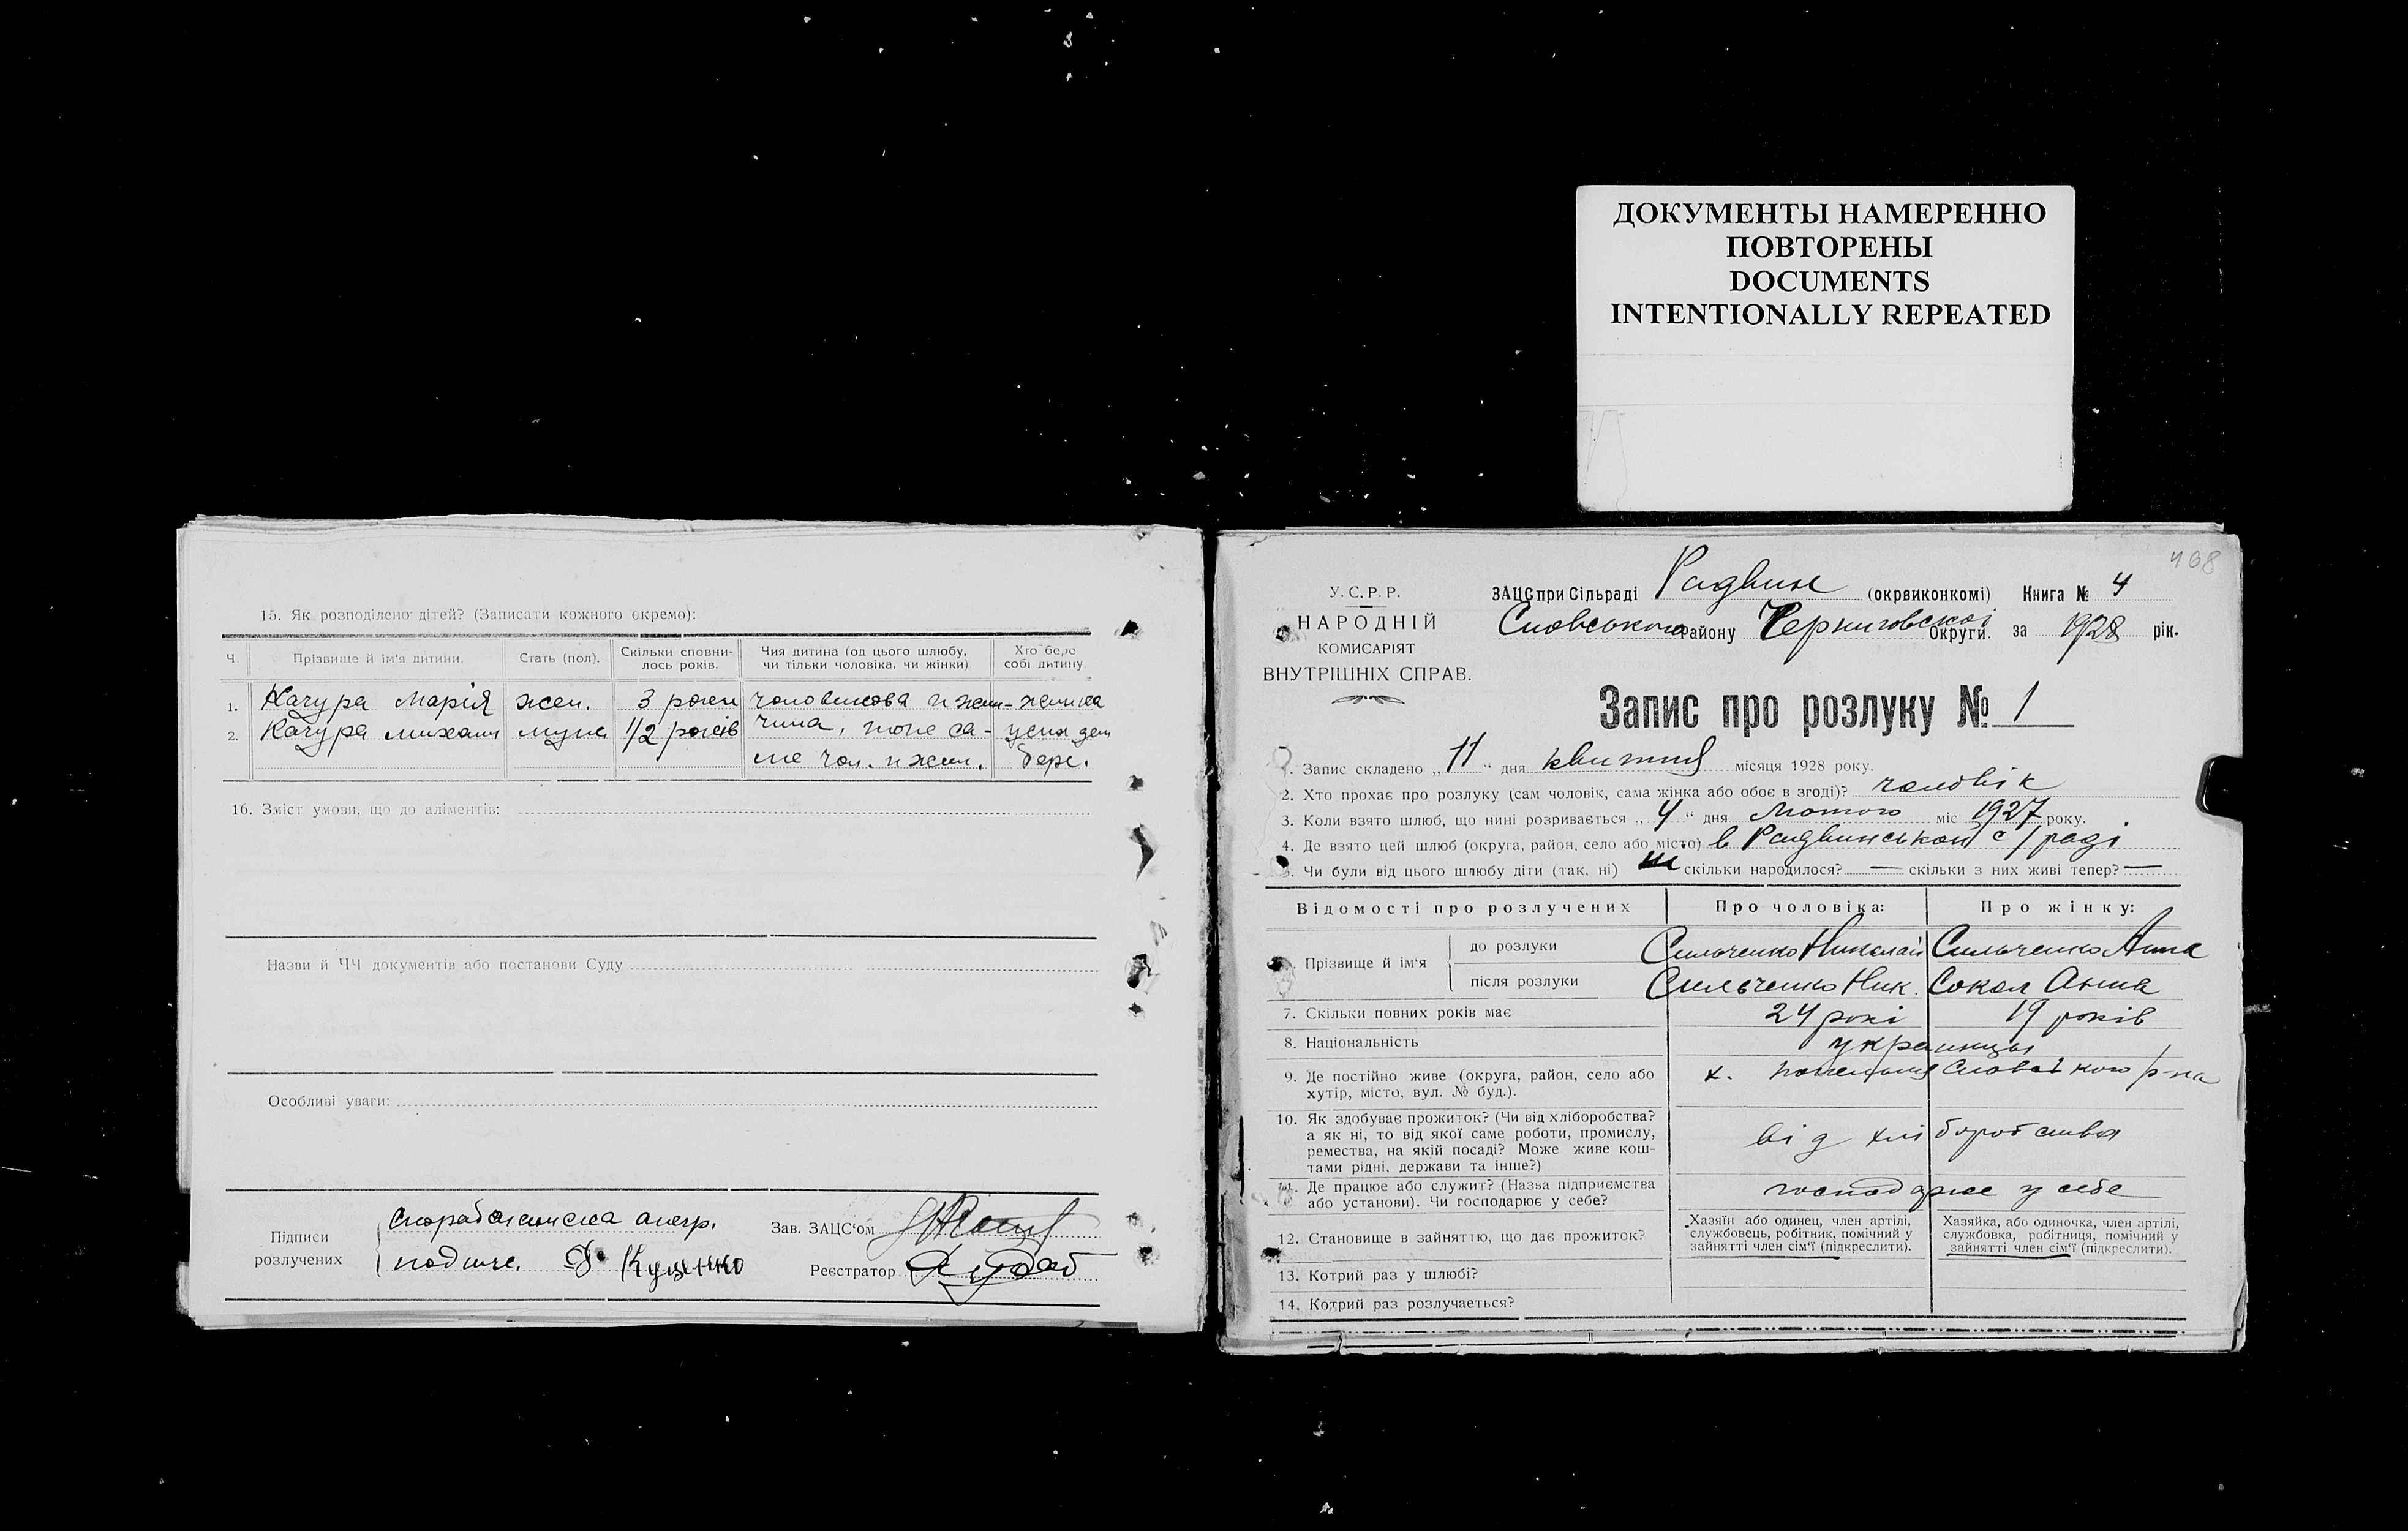 ДОКУМЕНТЫ НАМЕРЕННО
ПОВТОРЕНЫ
DOCUMENTS
INTENTIONALLY REPEATED
15. Як розподілено дітей? (Записати кожного окремо):
Ч. Прізвище й ім'я дитини. Стать (пол). Скільки сповни-лось років. Чия дитина (од цього шлюбу, чи тільки чоловіка, чи жінки) Хто бере собі дитину
1. Качура Марія жен. 3 роки чоловикова и жен-
2. Качура Михаил муж. 1/2 років чина, тоже са-
ме чол. и жен. бере.
16. Зміст умови, що до аліментів:
Назви й ЧЧ документів або постанови Суду
Особливі уваги:
Підписи розлучених
Кущенко
Зав. ЗАЦС'ом
Реєстратор
408
У.С.Р.Р.
НАРОДНІЙ
КОМИСАРІЯТ
ВНУТРІШНІХ СПРАВ.
ЗАЦС при Сільраді Радвин (окрвиконкомі) Книга № 4
Сновського району Черниговской Округи. за 1928 рік.
Запис про розлуку № 1
1. Запис складено „11“ дня квитня місяця 1928 року.
2. Хто прохає про розлуку (сам чоловік, сама жінка або обоє в згоді)? чоловік
3. Коли взято шлюб, що нині розривається „4“ дня Лютого міс 1927 року.
4. Де взято цей шлюб (округа, район, село або місто) в Радвинськой с/раді
5. Чи були від цього шлюбу діти (так, ні) скільки народилося? — скільки з них живі тепер? —
Відомості про розлучених Про чоловіка: Про жінку:
Прізвище й ім'я
до розлуки Сильченко Николай Сильченко Анна
після розлуки Сильченко Ник. Сокол Анна
7. Скільки повних років має 24 рокі 19 років
8. Національність украинцы
9. Де постійно живе (округа, район, село або
хутір, місто, вул. № буд.). х. Сновського р-на
10. Як здобуває прожиток? (Чи від хліборобства?
а як ні, то від якої саме роботи, промислу,
ремества, на якій посаді? Може живе кош-
тами рідні, держави та інше?) від хліборобства
11. Де працює або служит? (Назва підприємства
або установи). Чи господарює у себе? господарює у себе
12. Становище в зайняттю, що дає прожиток?
Хазяїн або одинец, член артілі,
службовець, робітник, помічний у
зайнятті член сім'ї (підкреслити).
Хазяйка, або одиночка, член артілі,
службовка, робітниця, помічний у
зайнятті член сім'ї (підкреслити).
13. Котрий раз у шлюбі?
14. Котрий раз розлучаеться?